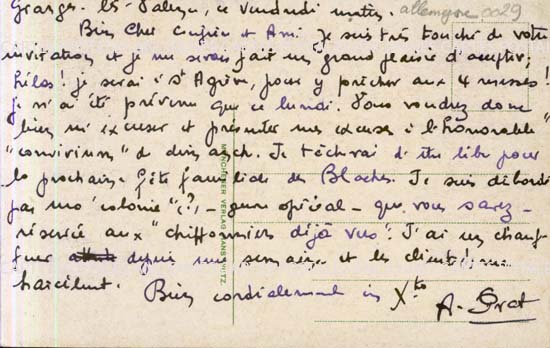 Granges-les-Valence, ce Vendredi matin. allemagne 0029
Bien Cher Curé et Ami. Je suis très touché de votre
invitation et je me serais fait un grand plaisir d'accepter;
hélas! je serai à St Agrève, pour y prêcher aux 4 messes!
je n'ai été prévenu que ce lundi. Vous voudrez donc
bien m'excuser et présenter mes excuses à l'"honorable"
"convivium" Je tâcherai d'être libre pour
la prochaine fête familiale des Blaches. Je suis débordé
par une "colonie" (?), - genre spécial - que vous savez -
réservée aux "chiffonniers déjà vus". J'ai un chauf-
feur depuis une semaine et les clients me
harcèlent. Bien cordialement in Xto
A. Grat
MÜNCHNER VERLAG HANS